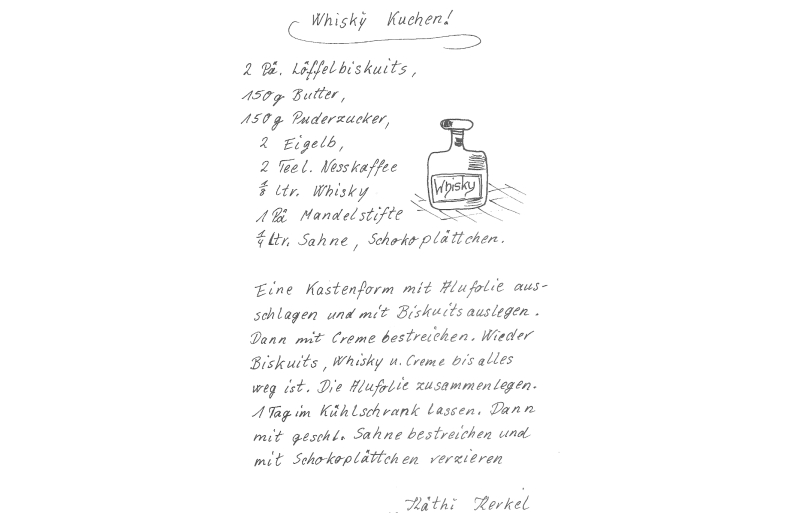 Whisky Kuchen!
2 Pä. Löffelbiskuits,
150g Butter,
150g Puderzucker,
2 Eigelb,
2 Teel. Nesskaffee
1/8 ltr. Whisky
1 Pä Mandelstifte
1/4 Ltr. Sahne, Schokoplättchen.
Whisky
Eine Kastenform mit Alufolie aus-
schlagen und mit Biskuits auslegen.
Dann mit Creme bestreichen. Wieder
Biskuits, Whisky u. Creme bis alles
weg ist. Die Alufolie zusammenlegen.
1 Tag im Kühlschrank lassen. Dann
mit geschl. Sahne bestreichen und
mit Schokoplättchen verzieren
Käthi Kerkel